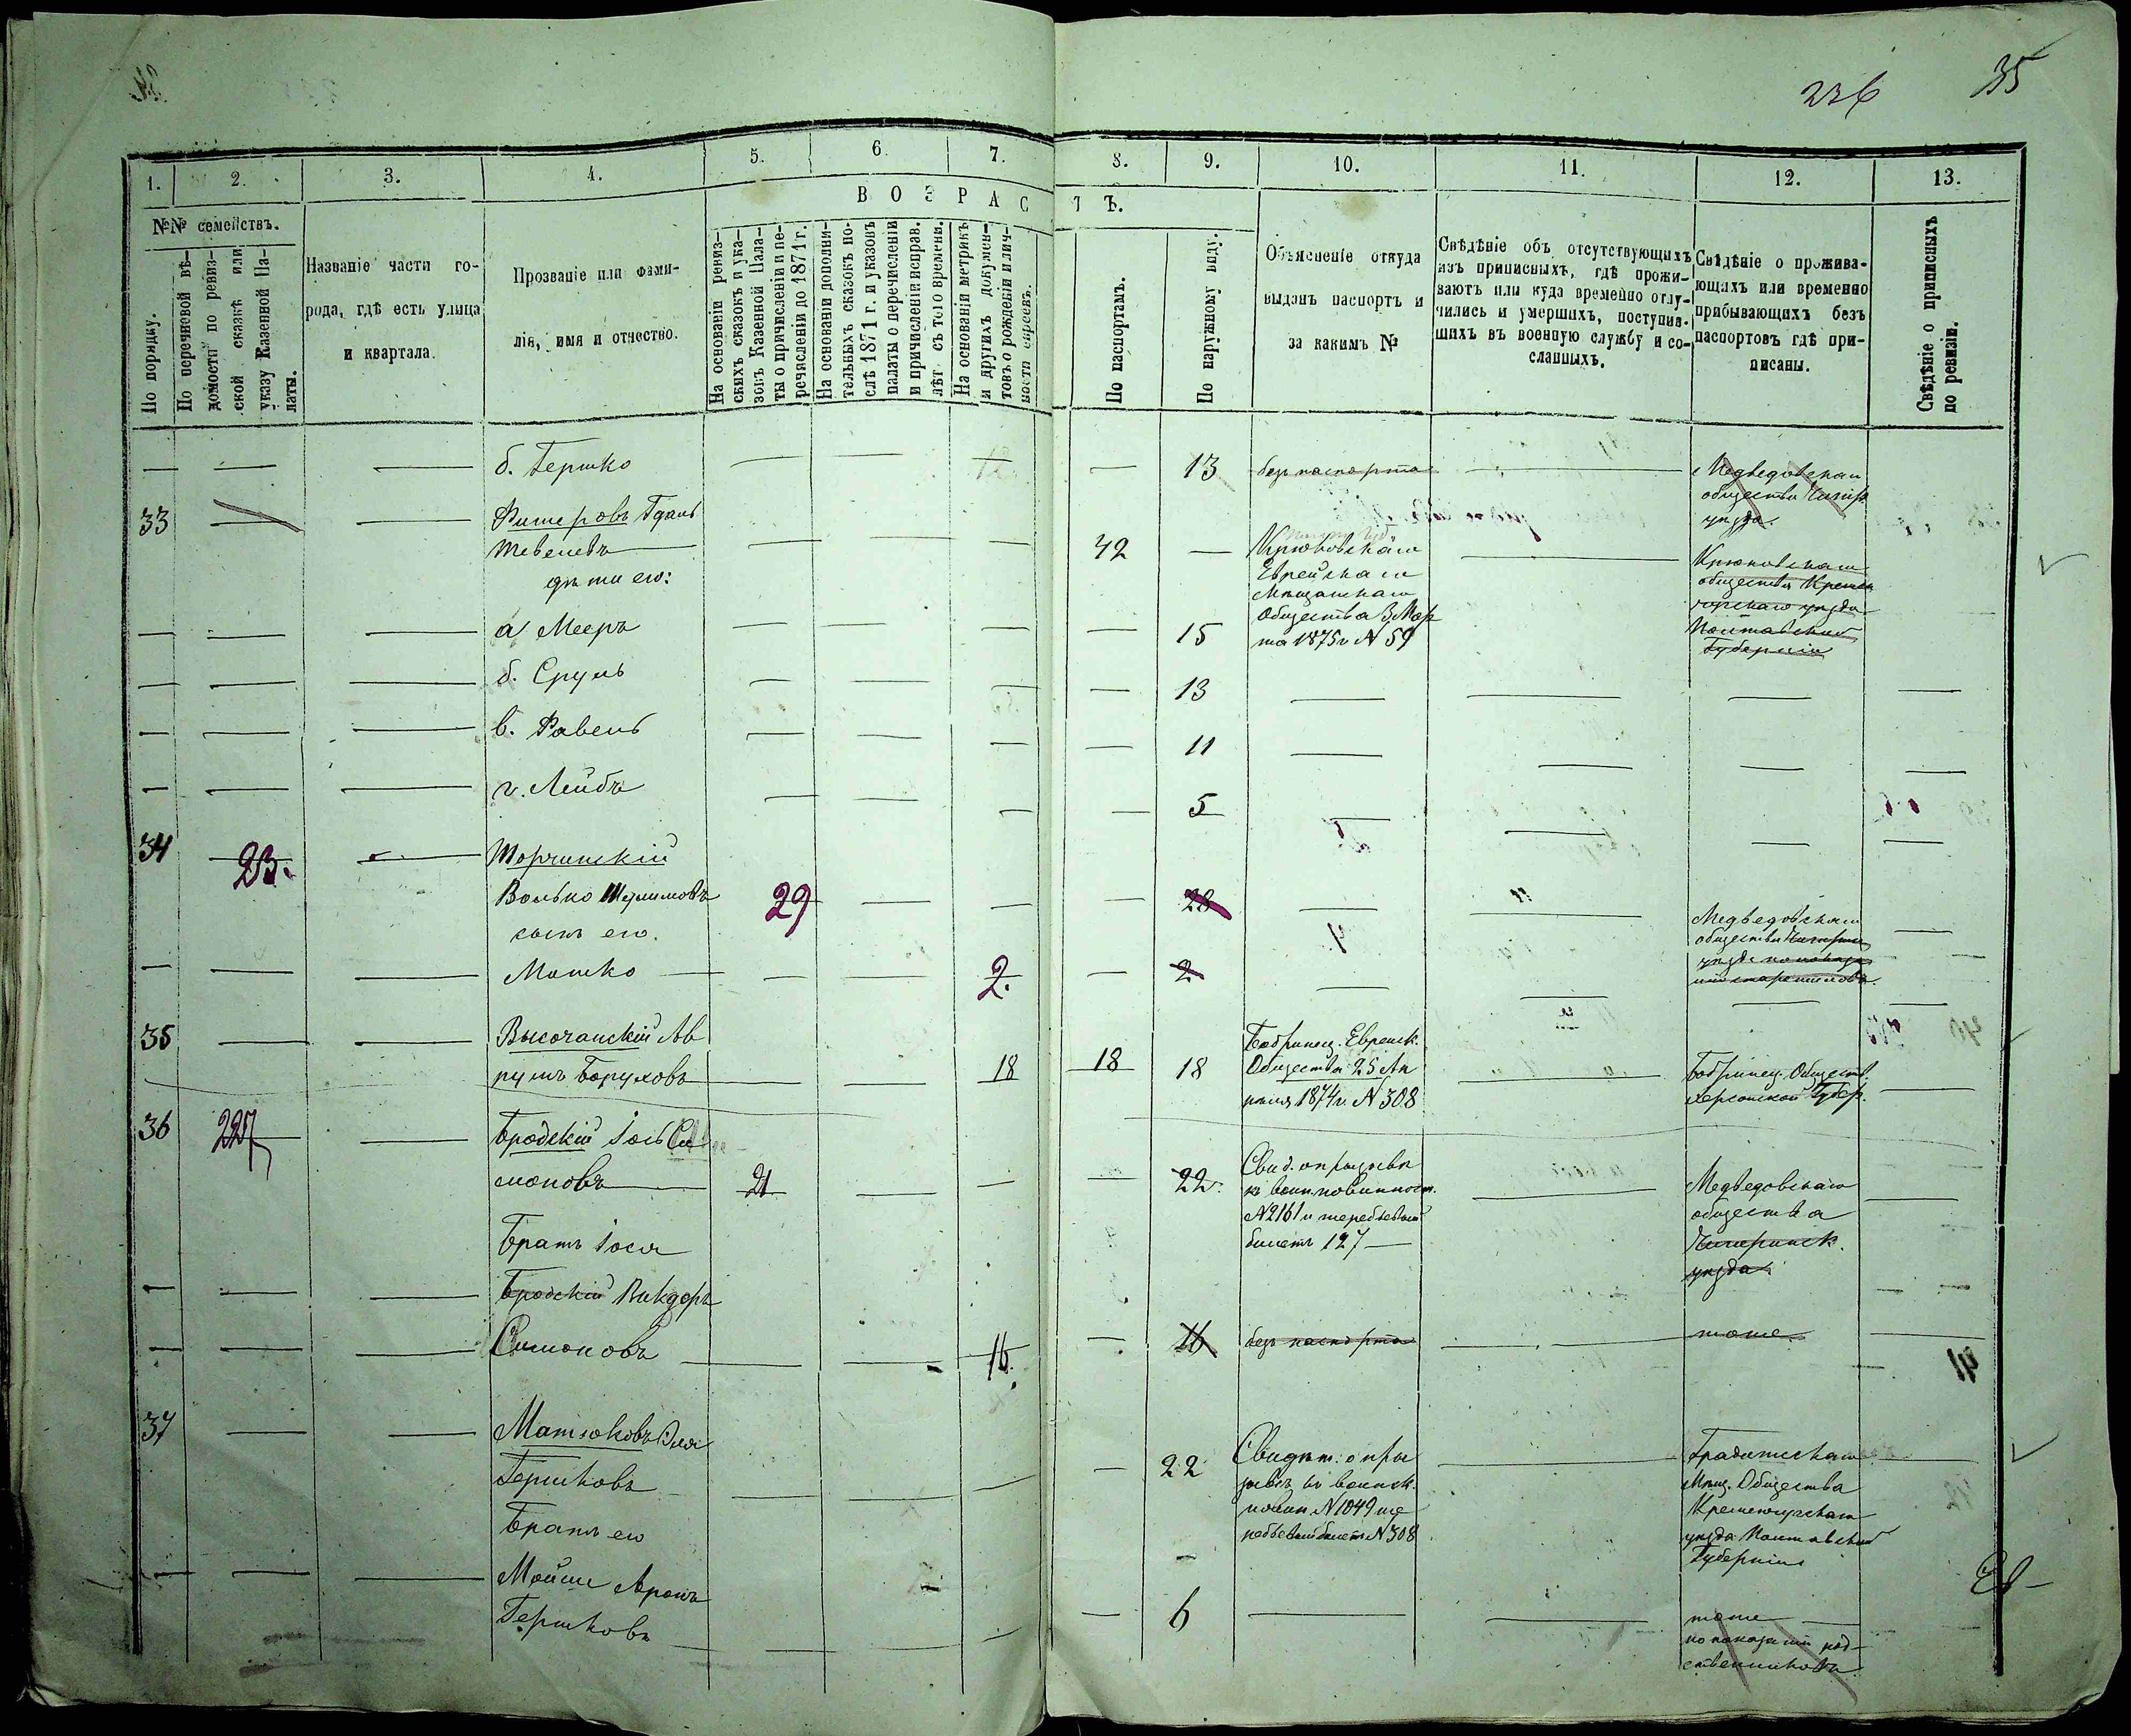 236 35
1. 2. 3. 4. 5. 6. 7. 8. 9. 10. 11. 12. 13.
№№ семействъ.
В О З Р А С Т Ъ.
По порядку.
По перечневой вѣ-
домости по ревиз-
ской сказкѣ или
указу Казенной Па-
латы.
Названіе части го-
рода, гдѣ есть улица
и квартала.
Прозваніе или фами-
лія, имя и отчество.
На основаніи ревиз-
скихъ сказокъ и ука-
зовъ Казенной Пала-
ты о причисленіи и пе-
речисленіи до 1871 г.
На основаніи дополни-
тельныхъ сказокъ по-
слѣ 1871 г. и указовъ
палаты о перечисленіи
и причисленіи исправ.
лѣт съ того времени.
На основаніи метрикъ
и другихъ докумен-
товъ о рожденіи и лич-
ности евреевъ.
По паспортамъ.
По наружному виду.
Объясненіе откуда
выданъ паспортъ и
за какимъ №
Свѣдѣніе объ отсутствующихъ
изъ приписныхъ, гдѣ прожи-
ваютъ или куда времейно отлу-
чились и умершихъ, поступив-
шихъ въ военную службу и со-
сланныхъ.
Свѣдѣніе о прожива-
ющихъ или временно
прибывающихъ безъ
паспортовъ гдѣ при-
писаны.
Свѣдѣніе о приписныхъ
по ревизіи.
б. Гершко 13 безъ паспорта Медведовскаго
общества Чигир.
уѣзда.
33 Фитеровъ
Тевелевъ 42
дѣти его:
Крюковскаго
Еврейскаго
Мѣщанскаго
Общества 3 Мар
та 1875 г № 59
Крюковскаго
общества Кремен
чугскаго уѣзда
Полтавской
Губерніи
а Мееръ 15
б. Сруль 13
в. Фавель 11
г. Лейбъ 5
34 23. Торчинскій
Волько Шулимовъ 29 28
сынъ его.
Мошко 2. 2
Медведовскаго
общества
уѣзда по показа
нію
35 Высочанскій Ав
румъ Боруховъ 18 18 18
Бобринец. Еврейск.
Общества 25 Ап
рѣля 1874 г. № 308
Бобринец. Обществ.
Херсонской Губер.
36 227 Бродскій Іось Си
моновъ 21 22
Свид. о призывѣ
къ воин. повинност.
№ 2161 и жеребьевый
билетъ 127
Медведовскаго
общества
Чигиринск.
уѣзда
Братъ Іося
Бродскій Викдоръ
Симоновъ 16. 16 безъ паспорта тоже
37 Матюковъ Эля
Гершковъ 22
Свидѣт. о при
зывѣ къ воинск.
повин № 1049 же
ребьевый билетъ № 308
Градижскаго
Мѣщ. Общества
Кременчугскаго
уѣзда Полтавской
Губерніи
Братъ его
Мойше Аронъ
Гершковъ 6 тоже
по показанію род-
ственниковъ